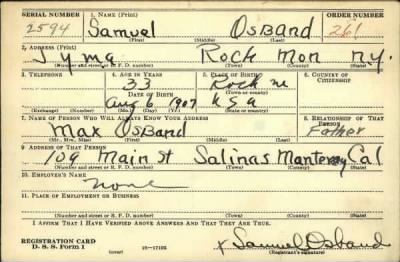 SERIAL NUMBER 1. NAME (Print) ORDER NUMBER
2594 Samuel Osband 261
(First) (Middle) (Last)
2. ADDRESS (Print)
Rock Mon NY.
(Number and street or R. F. D. number) (Town) (County) (State)
3. TELEPHONE 4. AGE IN YEARS 5. PLACE OF BIRTH 6. COUNTRY OF CITIZENSHIP
33
DATE OF BIRTH (Town or county)
Aug 6 1907 USA
(Exchange) (Number) (Mo.) (Day) (Yr.) (State or country)
7. NAME OF PERSON WHO WILL ALWAYS KNOW YOUR ADDRESS 8. RELATIONSHIP OF THAT PERSON
Max Osband Father
(Mr., Mrs., Miss) (First) (Middle) (Last)
9. ADDRESS OF THAT PERSON
109 Main St Salinas Monterey Cal
(Number and street or R. F. D. number) (Town) (County) (State)
10. EMPLOYER'S NAME
none
11. PLACE OF EMPLOYMENT OR BUSINESS
(Number and street or R. F. D. number) (Town) (County) (State)
I AFFIRM THAT I HAVE VERIFIED ABOVE ANSWERS AND THAT THEY ARE TRUE.
REGISTRATION CARD
D. S. S. Form 1 (over) 16—17105 x Samuel Osband
(Registrant's signature)